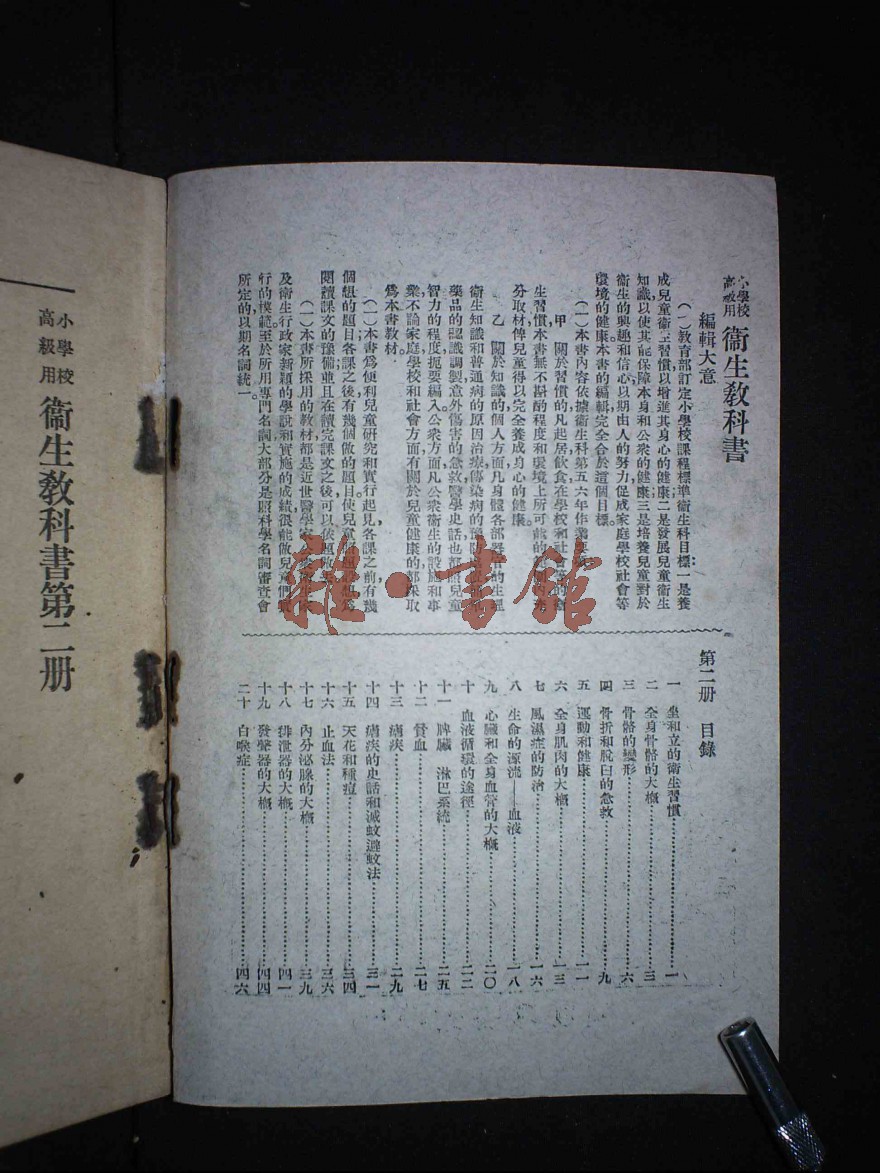 小學校
高級用
衞生教科書
編輯大意
(一)教育部訂定小學校課程標準衞生科目標:一是養
成兒童衞生習慣以增進其身心的健康;二是發展兒童衞生
知識以使其能保障本身和公衆的健康;三是培養兒童對於
衞生的興趣和信心以期由人的努力促成家庭學校社會等
環境的健康本書的編輯完全合於這個目標。
(一)本書內容依據衞生科第五六年作業
甲 關於習慣的凡起居飲食在學校和社
生習慣本書無不斟酌程度和環境上所可能的
分取材俾兒童得以完全養成身心的健康。
乙 關於知識的個人方面凡身體各部器官的生理
衞生知識和普通病的原因治療傳染病的預防
藥品的認識調製意外傷害的急救醫學史話也都照兒童
智力的程度扼要編入。公衆方面凡公衆衞生的設施和事
業不論家庭學校和社會方面有關於兒童健康的都採取
爲本書教材。
(一)本書爲便利兒童研究和實行起見,各課之前有幾
個想的題目各課之後有幾個做的題目使兒童
閱讀課文的豫備並且在讀完課文之後可以依題
(一)本書所採用的教材都是近世醫學家
及衞生行政家新穎的學說和實施的成績很能做兒童們實
行的模範。至於所用專門名詞大部分是照科學名詞審查會
所定的以期名詞統一。
第二册 目錄
一 坐和立的衞生習慣 一
二 全身骨骼的大概 三
三 骨骼的變形 六
四 骨折和脫臼的急救 九
五 運動和健康 一一
六 全身肌肉的大概 一三
七 風濕症的防治 一六
八 生命的源流——血液 一八
九 心臟和全身血管的大概 二〇
十 血液循環的途徑 二二
十一 脾臟 淋巴系統 二五
十二 貧血 二七
十三 瘧疾 二九
十四 瘧疾的史話和滅蚊避蚊法 三一
十五 天花和種痘 三四
十六 止血法 三六
十七 內分泌腺的大概 三九
十八 排泄器的大概 四一
十九 發聲器的大概 四四
二十 白喉症 四六
小學校
高級用
衞生教科書第二册
雜·書館